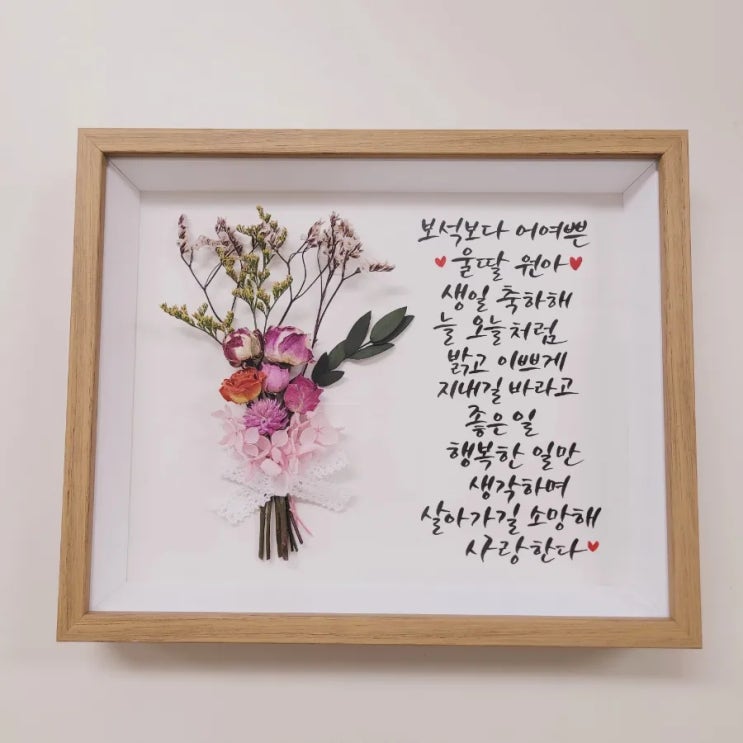 보석보다 어여쁜
♥울딸 원아♥
생일 축하해
늘 오늘처럼
밝고 이쁘게
지내길 바라고
좋은일
행복한 일만
생각하며
살아가길 소망해
사랑한다♥